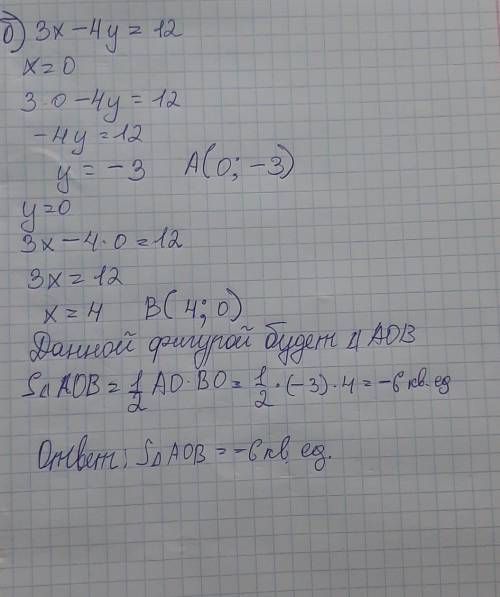 б) 3x - 4y = 12
x = 0
3·0 - 4y = 12
-4y = 12
y = -3 A(0; -3)
y = 0
3x - 4·0 = 12
3x = 12
x = 4 B(4; 0)
Данной фигурой будет △AOB
S△AOB = 1/2 AO·BO = 1/2·(-3)·4 = -6 кв. ед
Ответ: S△AOB = -6 кв. ед.